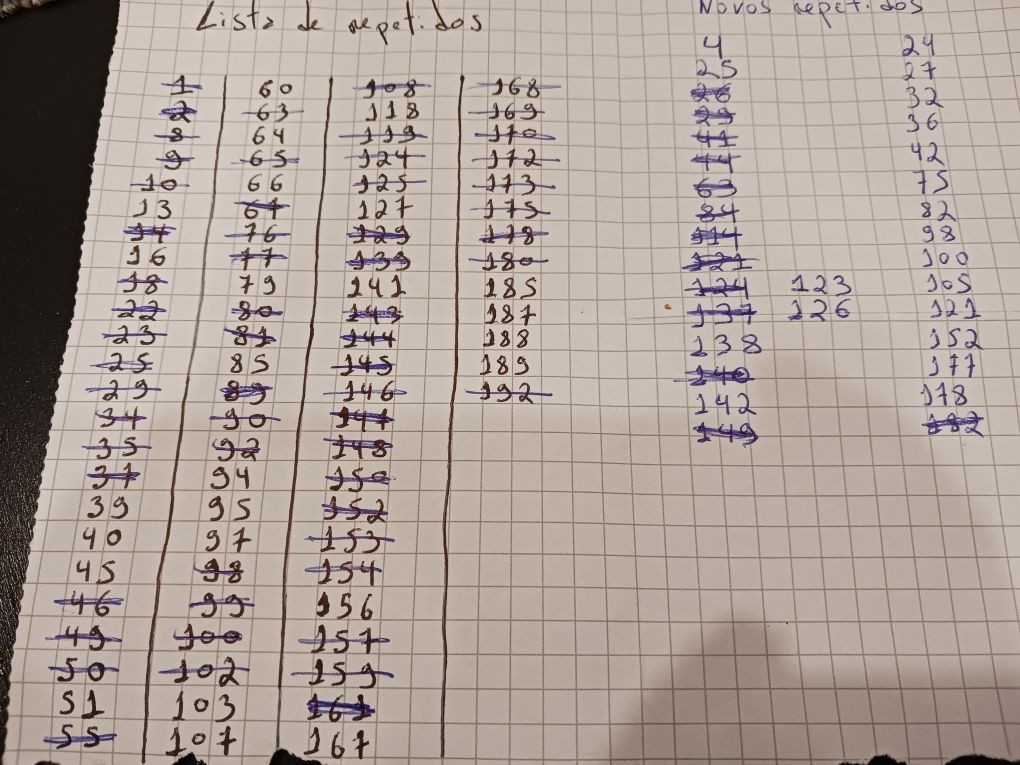 Lista de repetidos
1 60 108 168
2 63 118 169
8 64 119 170
9 65 124 172
10 66 125 173
13 67 127 175
14 76 129 178
16 77 139 180
18 79 141 185
22 80 143 187
23 81 144 188
25 85 145 189
29 89 146 192
34 90 147
35 92 148
37 94 150
39 95 152
40 97 153
45 98 154
46 99 156
49 100 157
50 102 159
51 103 161
55 107 167
Novos repetidos
4 24
25 27
26 32
29 36
41 42
44 75
63 82
84 98
114 100
121 105
124 123 121
137 126 152
138 177
140 178
142 182
149